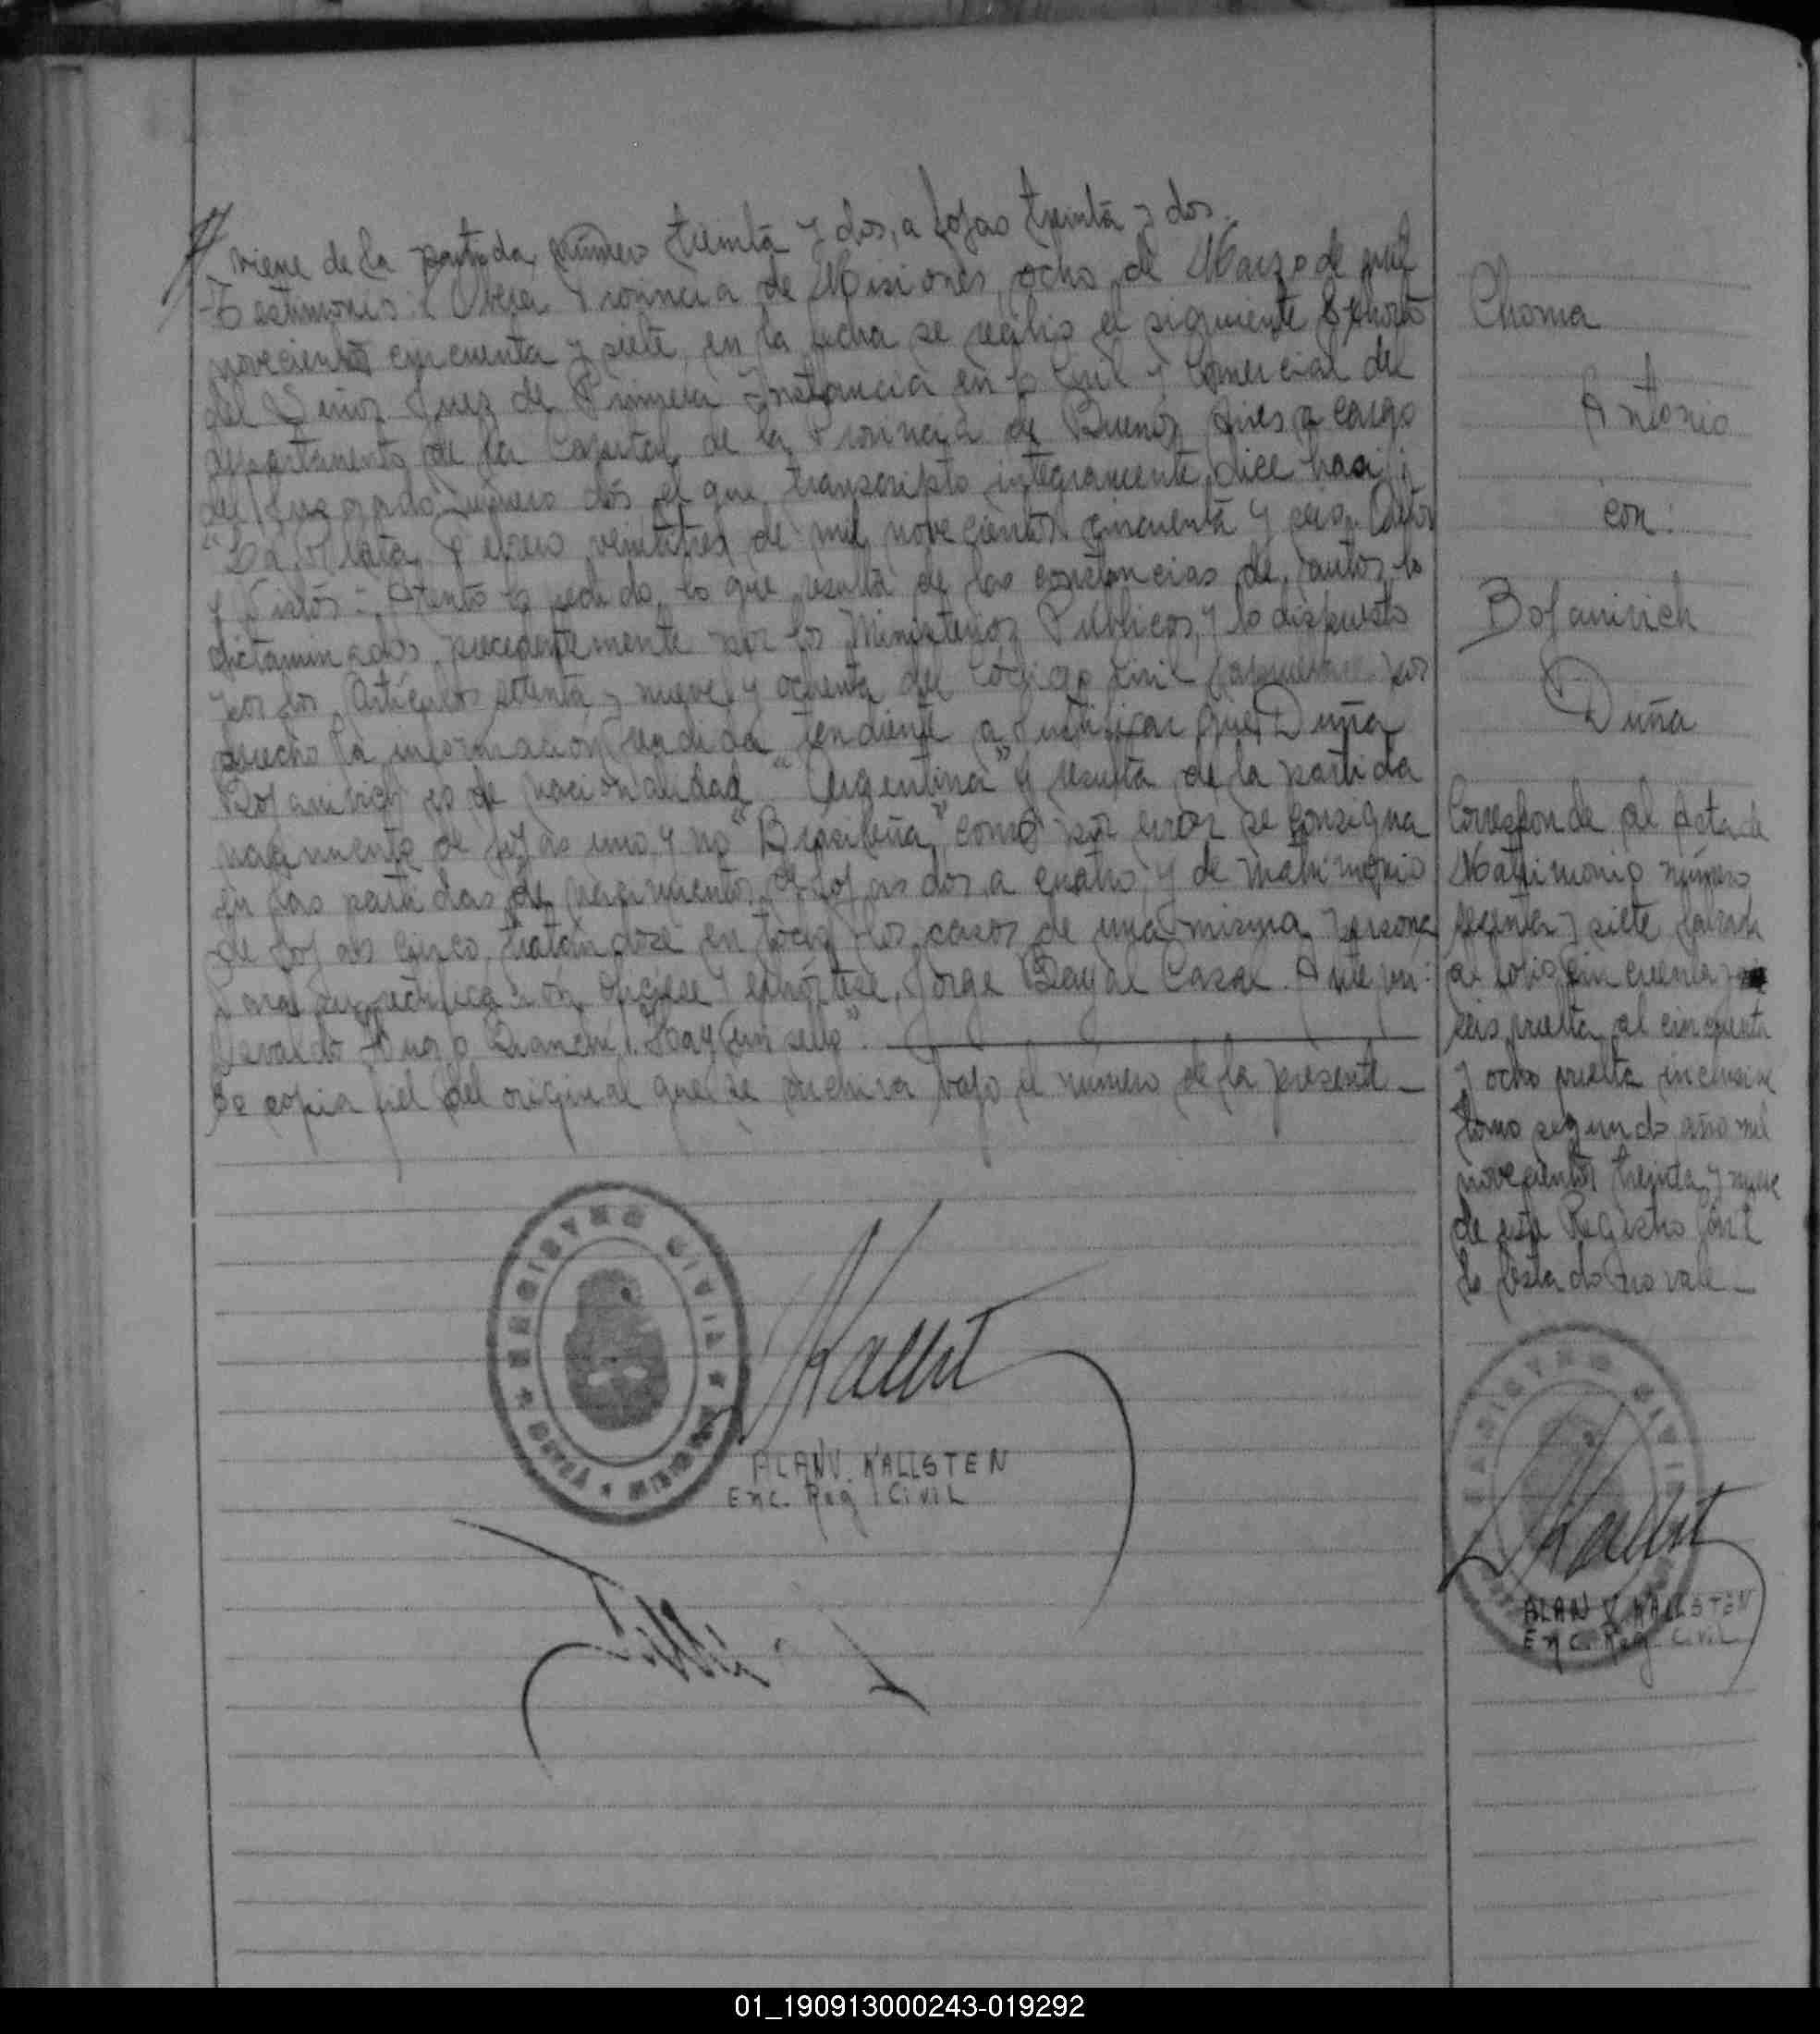 viene de la partida número treinta y dos, a fojas treinta y dos.
Testimonio: Oberá Provincia de Misiones, ocho de Marzo de mil
novecientos cincuenta y siete, en la fecha se recibió el siguiente Exhorto
del Señor Juez de Primera Instancia en lo Civil y Comercial del
departamento de la Capital de la Provincia de Buenos Aires a cargo
del Juzgado número dos el que transcripto integramente dice hasi:
"La Plata, Febrero veintitres de mil novecientos cincuenta y seis. Autos
y Vistos: Atento lo pedido, lo que resulta de las constancias de autos, lo
dictaminados precedentemente por los Ministerios Públicos, y lo dispuesto
por los Artículos setenta y nueve y ochenta del Código Civil por
derecho la información rendida tendiente a justificar que Duña
Bojanivich es de nacionalidad "Argentina" y resulta de la partida
nacimiento de fojas uno y no "Brasileña" como por error se consigna
en las partidas de nacimientos de fojas dos a cuatro y de matrimonio
de fojas cinco, tratándose en todos los casos de una misma persona
Para su rectificación oficiese y exhórtese, Jorge Casal. Ante mi:
Osvaldo Bianchi. Hay un sello".
Es copia fiel del original que se archiva bajo el número de la presente
Choma
Antonio
con:
Bojanivich
Duña
Corresponde al Acta de
Matrimonio número
setenta y siete labrada
a folio cincuenta y
seis vuelta al cincuenta
y ocho vuelta inclusive
tomo segundo año mil
novecientos treinta y nueve
de este Registro Civil
lo testado no vale
REGISTRO CIVIL
ALAN V. KALLSTEN
Enc. Reg. Civil
ALAN V. KALLSTEN
Enc. Reg. Civil
01_190913000243-019292